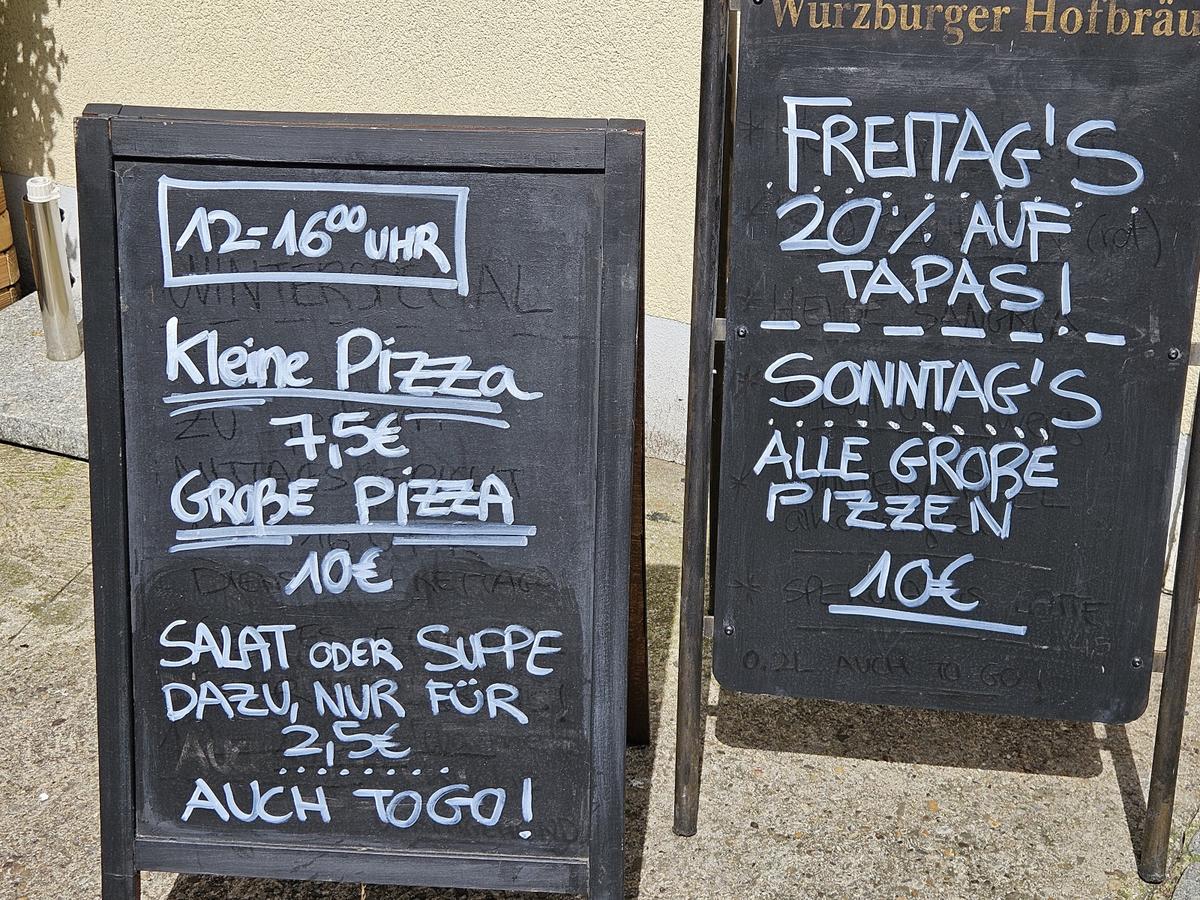 12-16⁰⁰ UHR
Kleine Pizza
7,5€
GROßE PiZZA
10€
SALAT ODER SUPPE
DAZU, NUR FÜR
2,5€
AUCH TO GO!
Würzburger Hofbräu
FREITAG'S
20% AUF
TAPAS!
SONNTAG'S
ALLE GROßE
PIZZEN
10€
WINTERSPECIAL
0,2L AUCH TO GO!